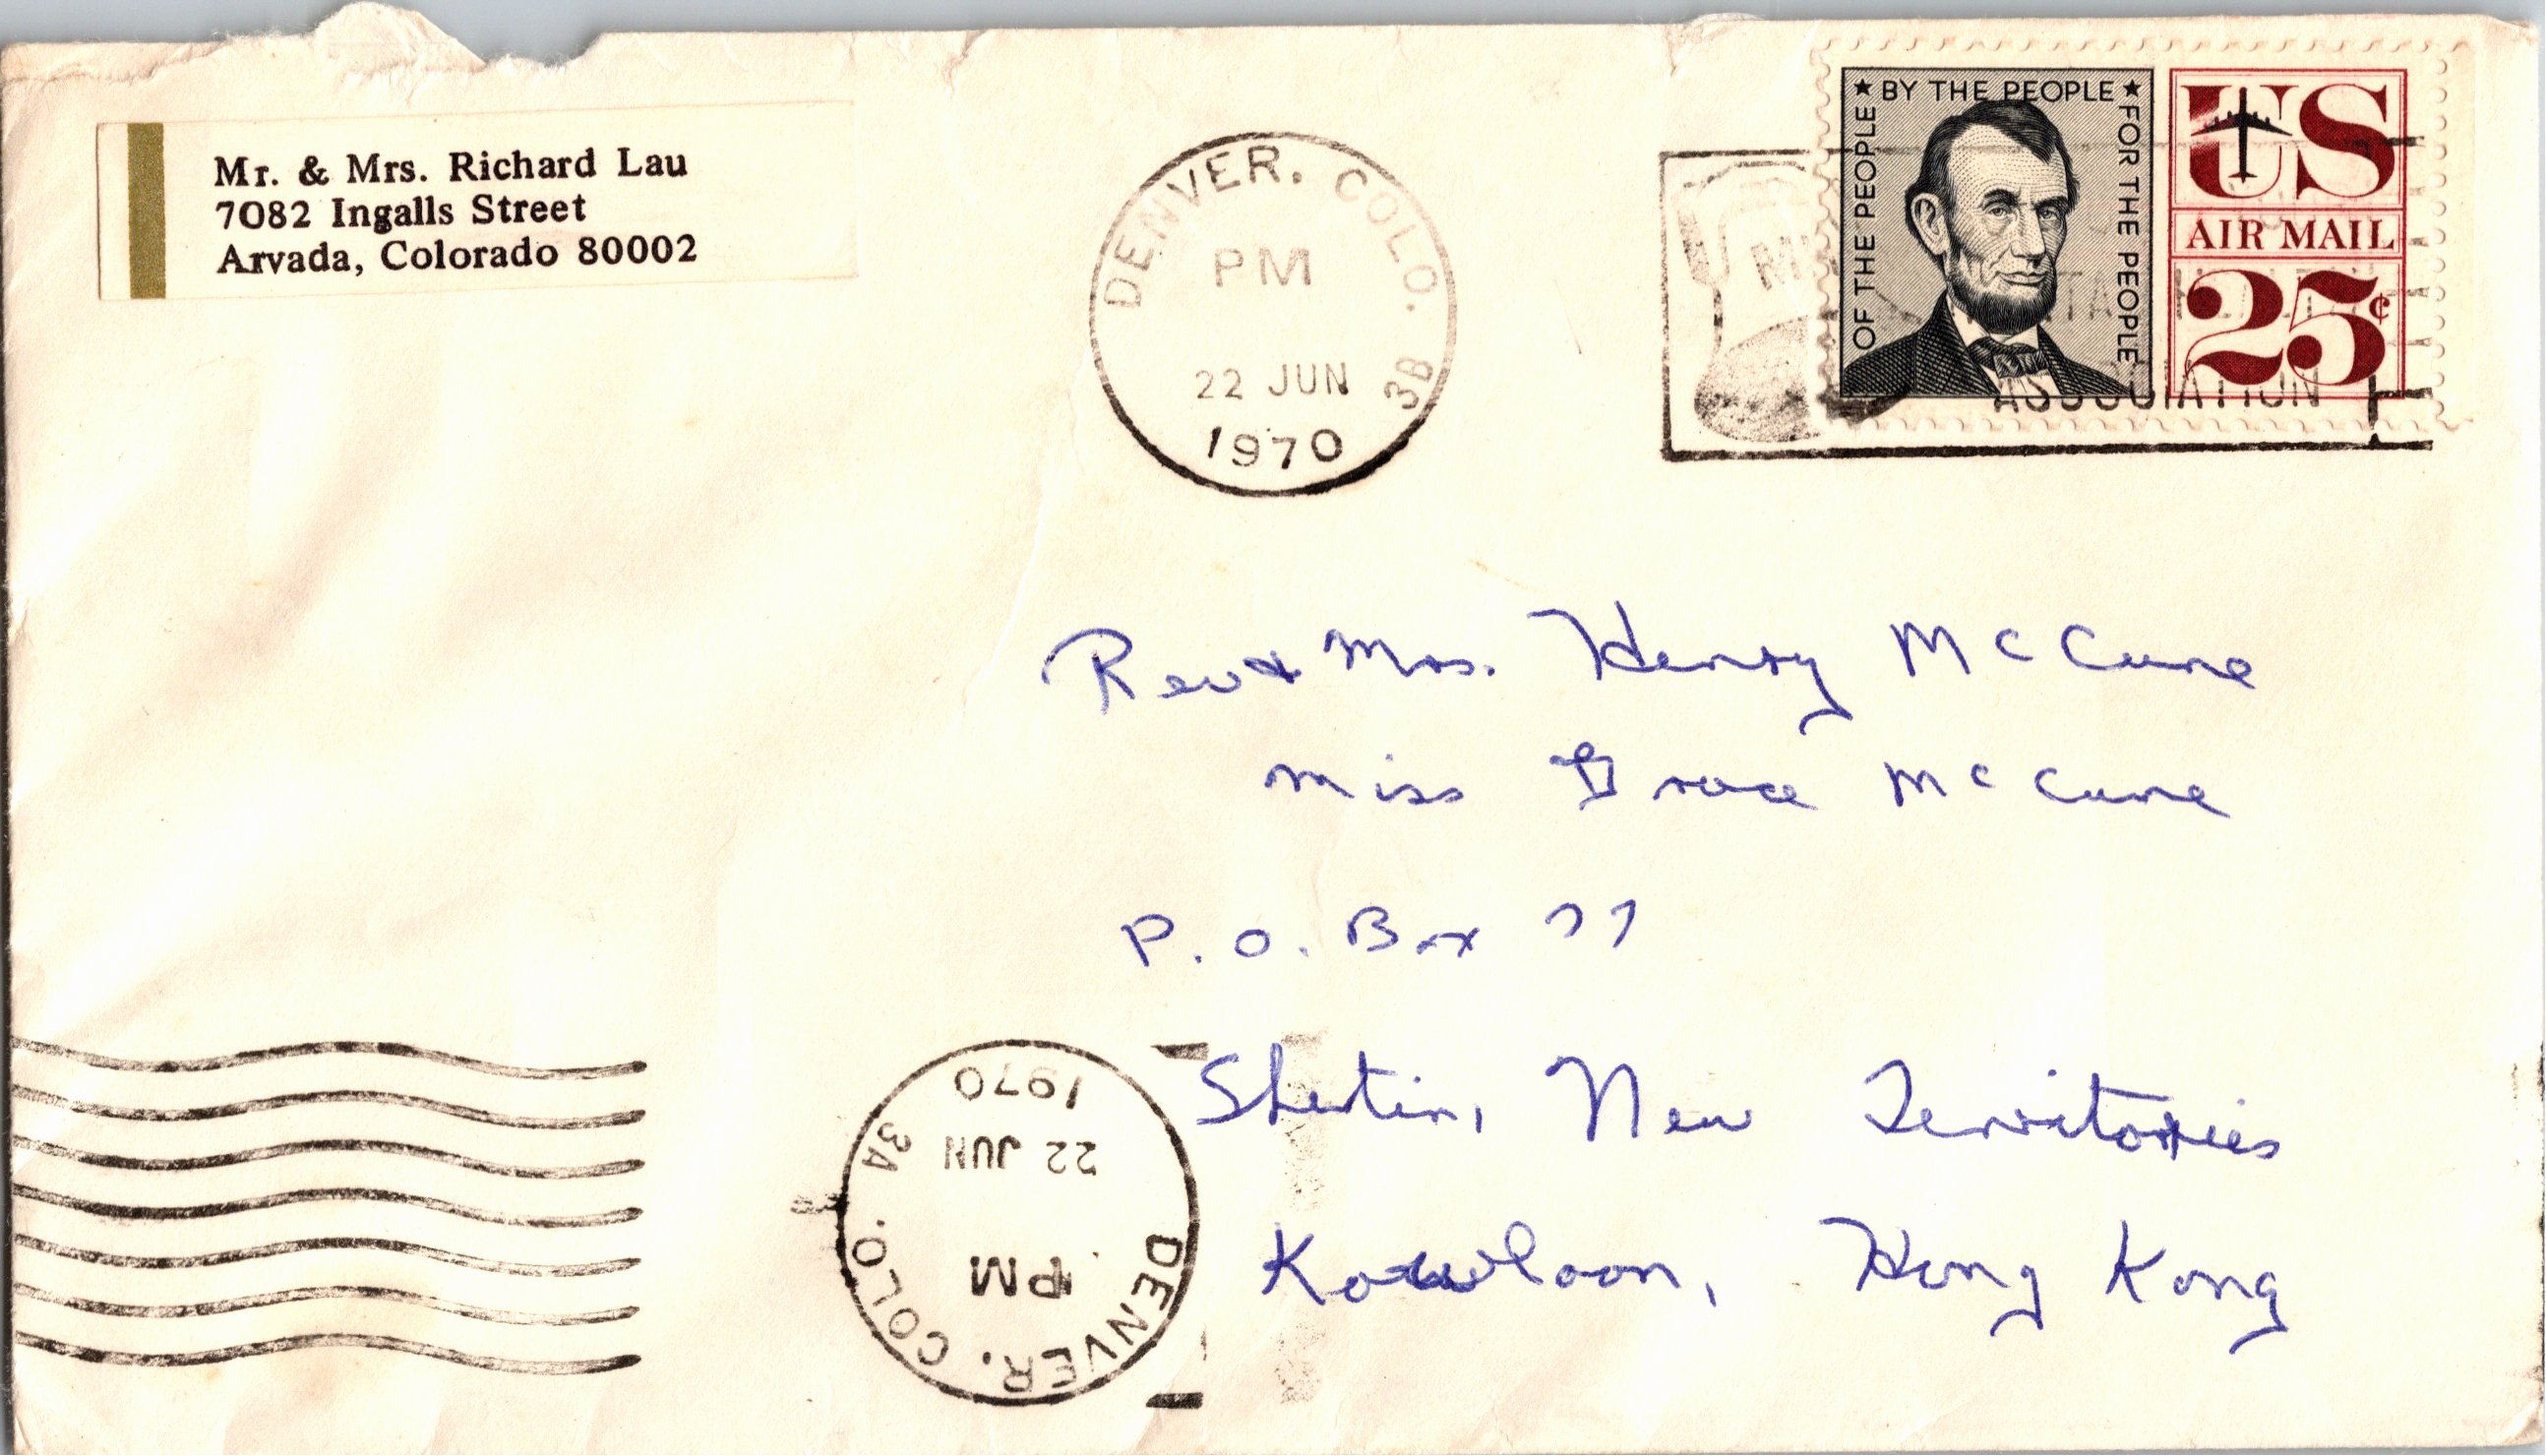 Mr. & Mrs. Richard Lau
7082 Ingalls Street
Arvada, Colorado 80002
DENVER, COLO. 3B
PM
22 JUN
1970
★ BY THE PEOPLE ★
OF THE PEOPLE
FOR THE PEOPLE
US
AIR MAIL
25¢
ASSOCIATION
Rev & Mrs. Henry McCune
Miss Grace McCune
P. O. Box 77
Shatin, New Territories
Kowloon, Hong Kong
DENVER, COLO. 3A
PM
22 JUN
1970